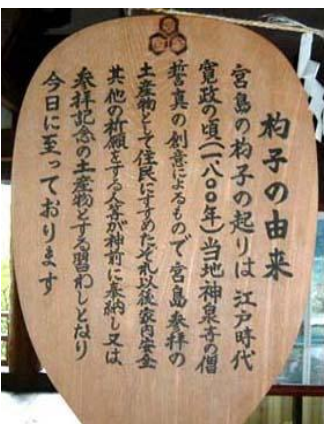 杓子の由来
宮島の杓子の起りは 江戸時代
寛政の頃(一八〇〇年)当地神泉寺の僧
誓真の創意によるもので 宮島参拝の
土産物として住民にすすめたそれ以後家内安全
其他の祈願をする人等が神前に奉納し又は
参拝記念の土産物とする習わしとなり
今日に至っております